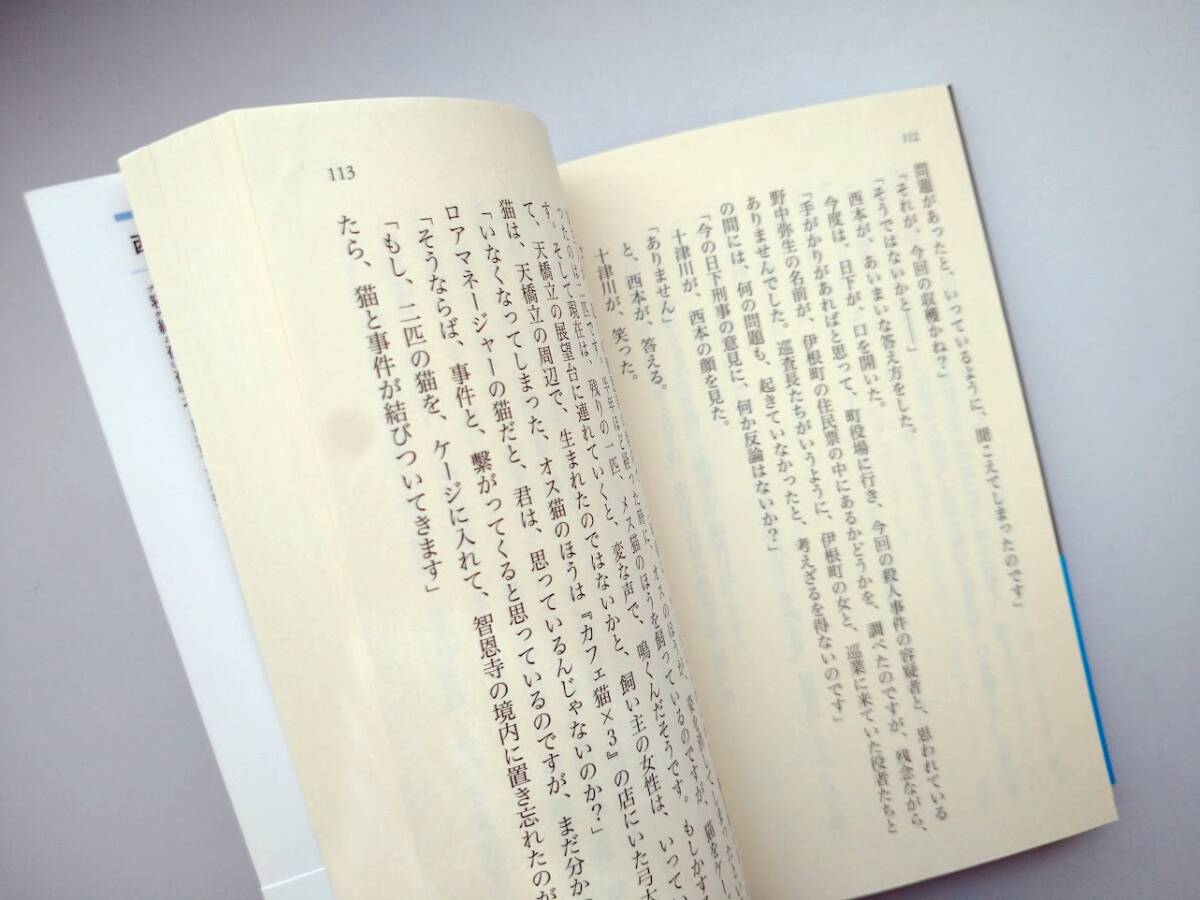 112
問題があったと、いっているように、聞こえてしまったのです」
「それが、今回の収穫かね？」
「そうではないかと――」
西本が、あいまいな答え方をした。
今度は、日下が、口を開いた。
「手がかりがあればと思って、町役場に行き、今回の殺人事件の容疑者と、思われている
野中弥生の名前が、伊根町の住民票の中にあるかどうかを、調べたのですが、残念ながら、
ありませんでした。巡査長たちがいうように、伊根町の女と、巡業に来ていた役者たちと
の間には、何の問題も、起きていなかったと、考えざるを得ないのです」
「今の日下刑事の意見に、何か反論はないか？」
十津川が、西本の顔を見た。
「ありません」
と、西本が、答える。
十津川が、笑った。
113
す。そして現在は、残りの一匹、メス猫のほうを飼っているのですが、猫をケー
て、天橋立の展望台に連れていくと、変な声で、鳴くんだそうです。もしかす
猫は、天橋立の周辺で、生まれたのではないかと、飼い主の女性は、いってい
「いなくなってしまった、オス猫のほうは『カフェ猫×3』の店にいた弓大
ロアマネージャーの猫だと、君は、思っているんじゃないのか？」
「そうならば、事件と、繋がってくると思っているのですが、まだ分か
「もし、二匹の猫を、ケージに入れて、智恩寺の境内に置き忘れたのが
たら、猫と事件が結びついてきます」